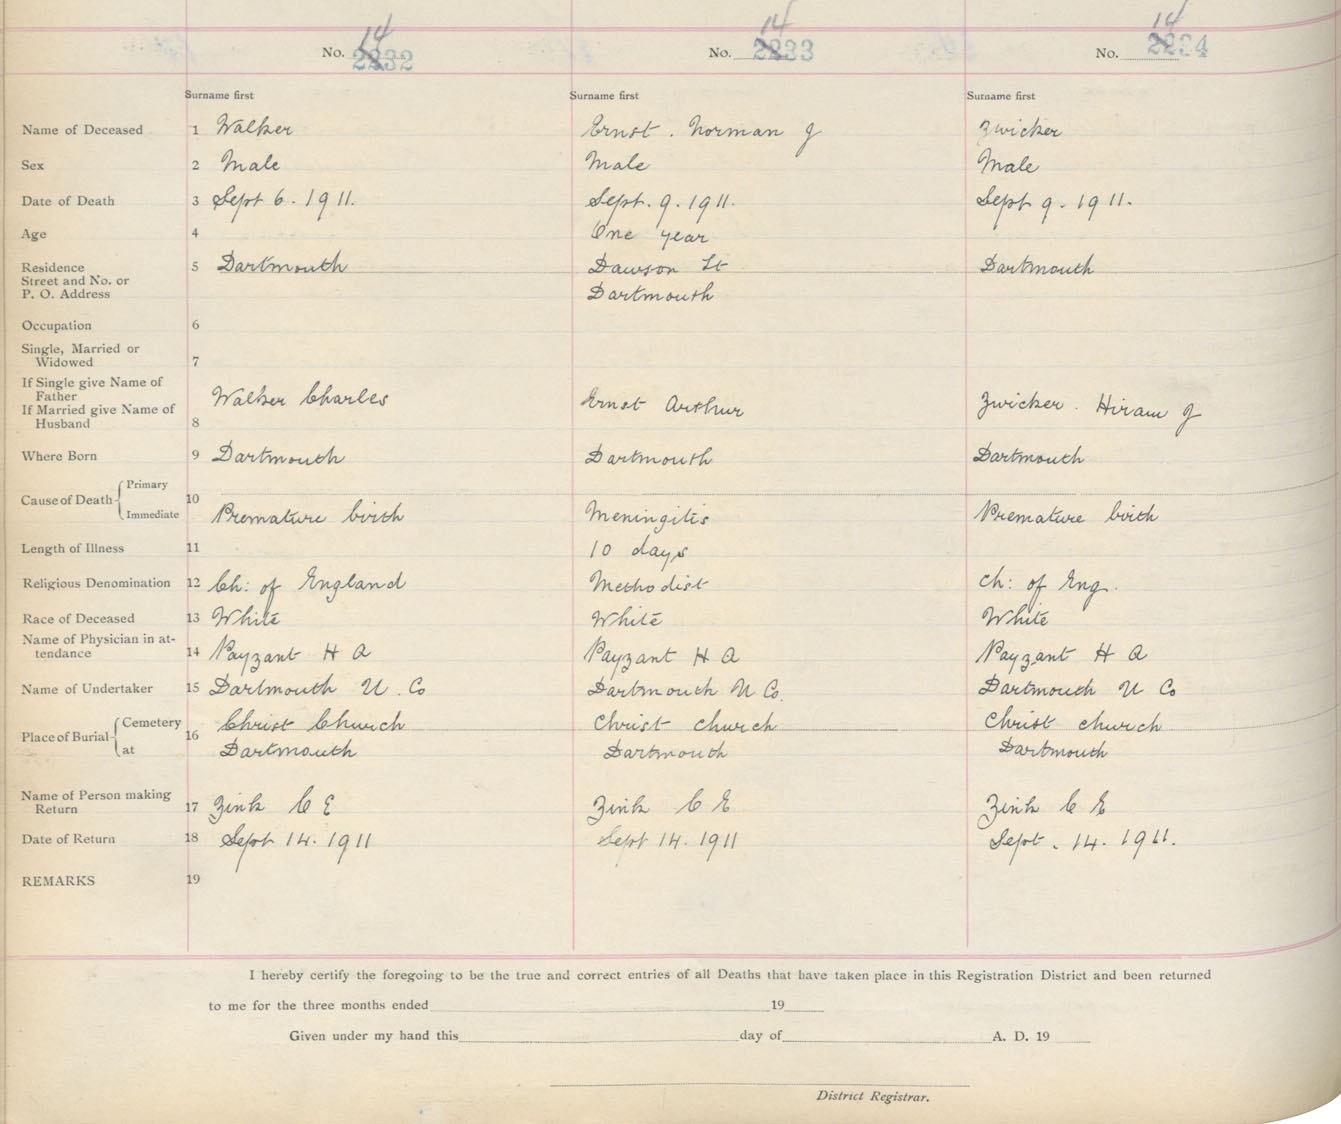 14 14 14
No. 2232 No. 2233 No. 2234
Surname first Surname first Surname first
Name of Deceased 1 Walker Ernst . Norman J Zwicker
Sex 2 Male Male Male
Date of Death 3 Sept 6 . 1911. Sept. 9 . 1911. Sept 9 . 1911.
Age 4 One year
Residence 5 Dartmouth Dawson St Dartmouth
Street and No. or
P. O. Address Dartmouth
Occupation 6
Single, Married or
Widowed 7
If Single give Name of
Father Walker Charles Ernst Arthur Zwicker . Hiram J
If Married give Name of
Husband 8
Where Born 9 Dartmouth Dartmouth Dartmouth
Primary
Cause of Death 10
Immediate Premature birth Meningitis Premature birth
Length of Illness 11 10 days
Religious Denomination 12 Ch: of England Methodist Ch: of Eng.
Race of Deceased 13 White White White
Name of Physician in at-
tendance 14 Payzant H A Payzant H A Payzant H A
Name of Undertaker 15 Dartmouth U . Co Dartmouth U Co. Dartmouth U Co
Cemetery Christ Church Christ Church Christ Church
Place of Burial 16
at Dartmouth Dartmouth Dartmouth
Name of Person making
Return 17 Zink C E Zink C E Zink C E
Date of Return 18 Sept 14. 1911 Sept 14. 1911 Sept . 14. 1911.
REMARKS 19
I hereby certify the foregoing to be the true and correct entries of all Deaths that have taken place in this Registration District and been returned
to me for the three months ended 19
Given under my hand this day of A. D. 19
District Registrar.